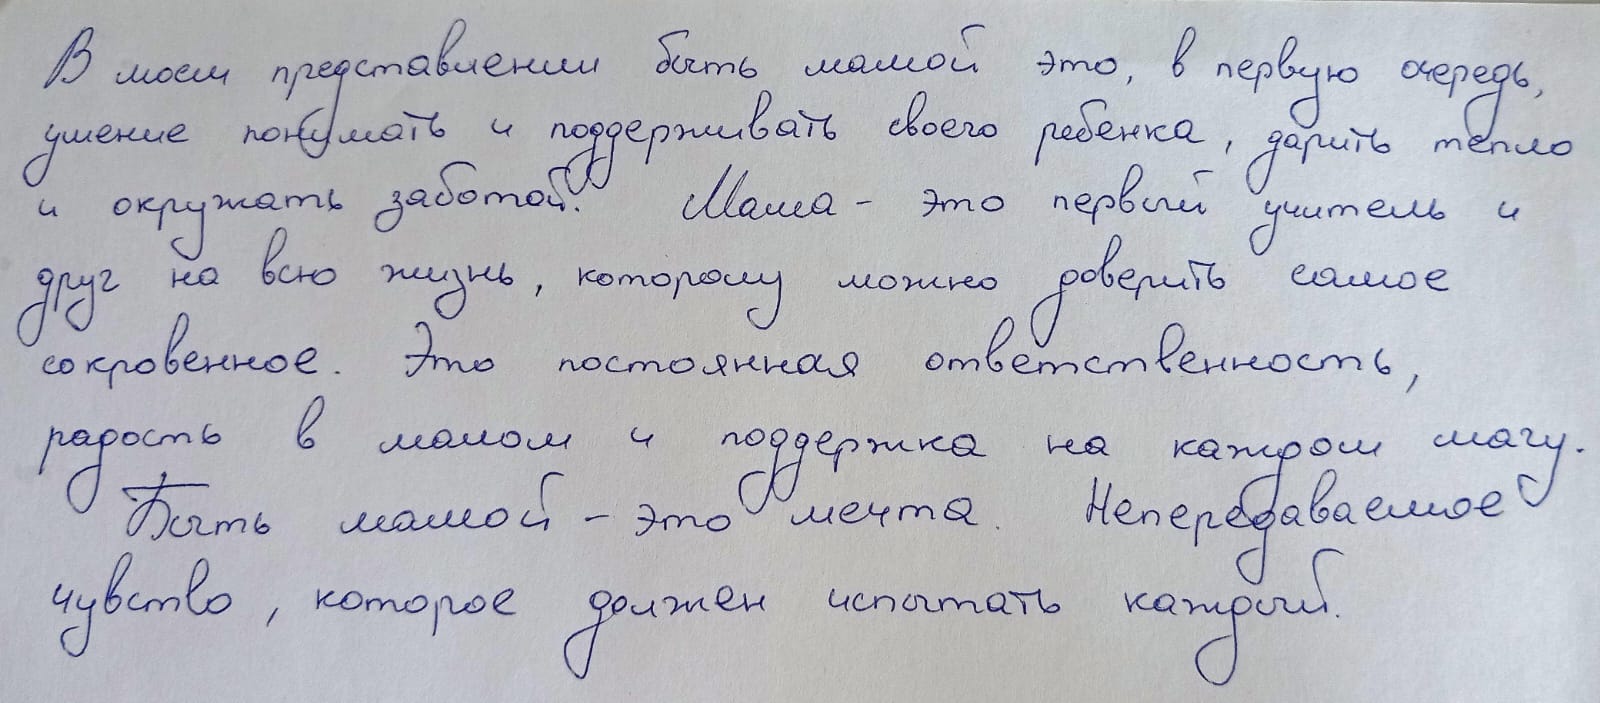 В моем представлении быть мамой это, в первую очередь,
умение понимать и поддерживать своего ребенка, дарить тепло
и окружать заботой. Мама - это первый учитель и
друг на всю жизнь, которому можно доверить самое
сокровенное. Это постоянная ответственность,
радость в малом и поддержка на каждом шагу.
Быть мамой - это мечта. Непередаваемое
чувство, которое должен испытать каждый.